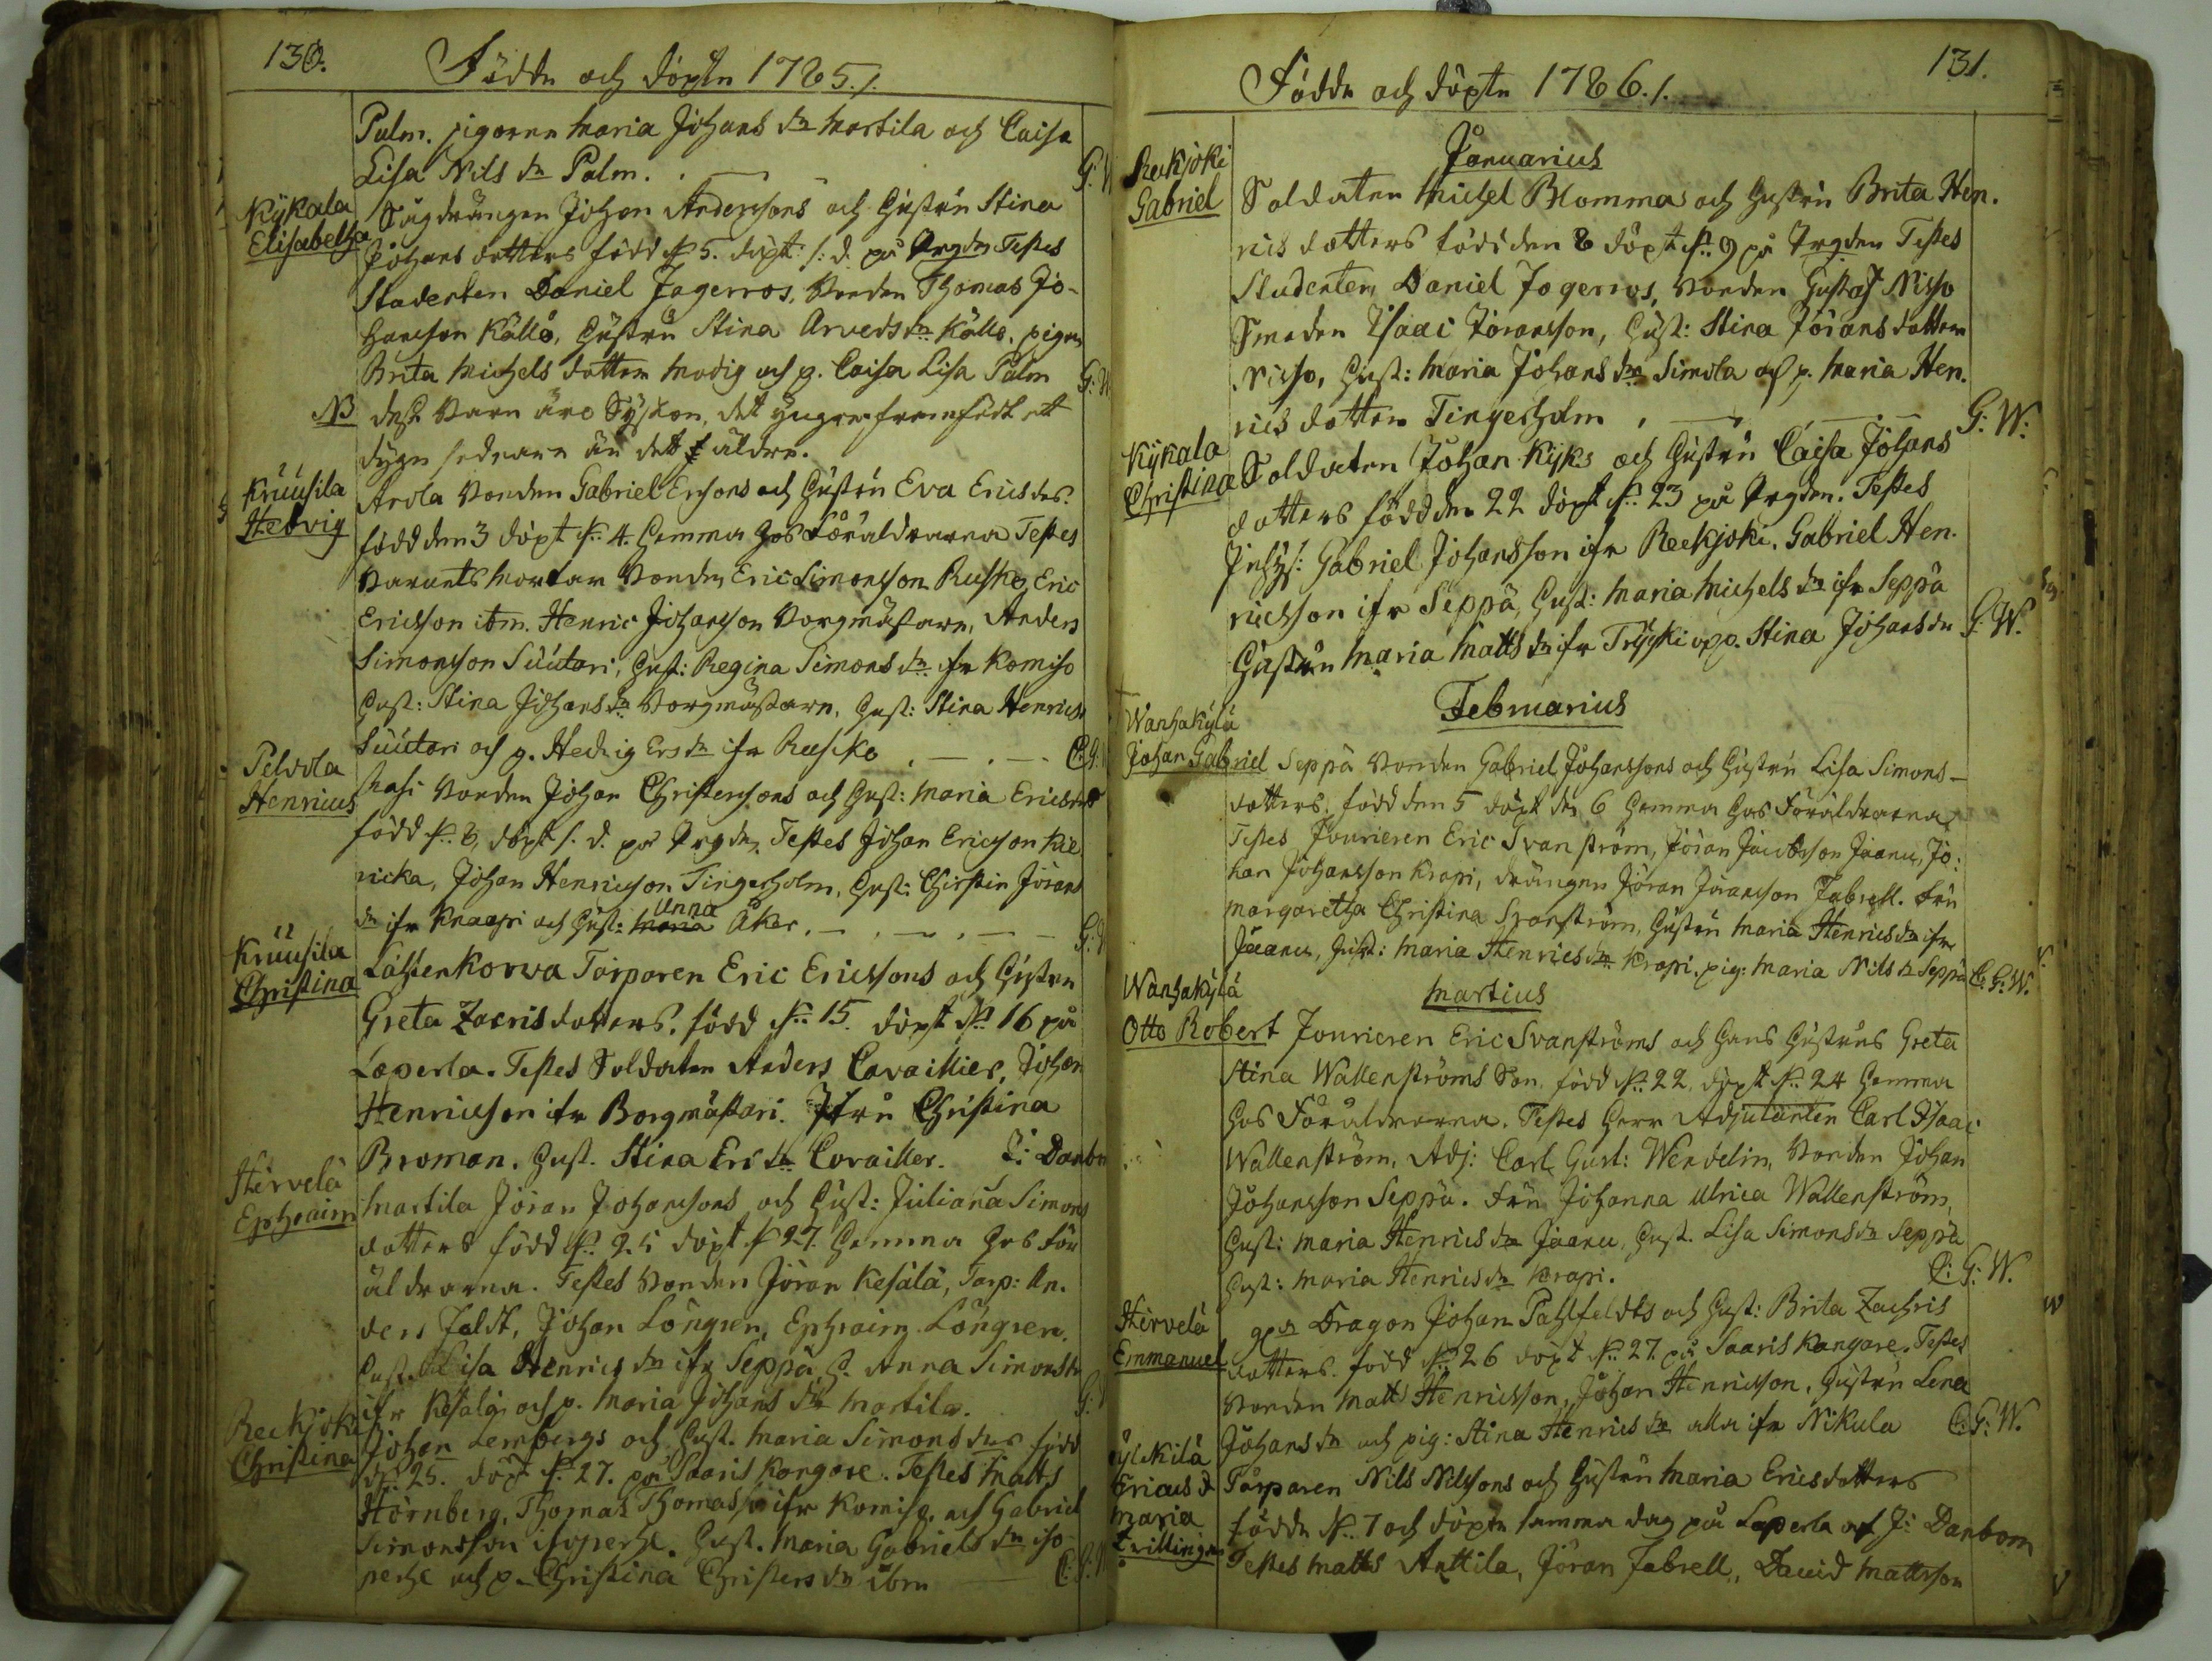 130.
Födde och döpte 1785./.
Palm. pigorne Maria Johans dr Martila och Caisa
Lisa Nils dr Palm.
Kÿkala
Elisabetha
Johan Anderssons och Hustrun Stina
Johans dotters född d. 5. döpt s. d. på Prgdn Testes
Studenten Daniel Jagerros, Bonden Thomas Jo-
hansson Källo, Hustru Stina Arvids dr Källo, pigan
Brita Michels dotter Modig och p. Caisa Lisa Palm
NB
desse Barn äro Syskon, det yngre framfödt ett
dygn sednare än det äldre.
Kruusila
Hedvig
Arola Bonden Gabriel Ersons och Hustru Eva Erics drs
född den 3 döpt d. 4. hemma hos Föräldrarna Testes
Bonden Eric Simonsson Rusko, Eric
Ericsson ibm. Henric Johansson Borgmästare, Anders
Simonsson Suutari, Hust: Regina Simons dr ifr Komiso
Hust: Stina Johans dr Borgmästare, Hust: Stina Henrics
Suutari och p. Hedvig Ers dr ifr Rusko
Pelvola
Henricus
Hasi Bonden Johan Christerssons och Hust: Maria Erics
född d. 8, döpt s. d. på Prgdn. Testes Johan Ericsson Kae
nicka, Johan Henricsson Tingerholm, Hust: Christin Jörans
dr ifr Knaapi och Hust: Anna Åker.
Kruusila
Christina
Lähtenkorwa Torparen Eric Ericssons och Hustrun
Greta Zacris dotters. född d. 15. döpt d. 16 på
Laperla. Testes Soldaten Anders Cavaillier, Johan
Henricsson ifr Borgmästari. Jfru Christina
Broman. Hust. Stina Ers dr Cavaillier. J: Danbo
Hirvelä
Ephraim
Martila Jöran Johanssons och Hust: Juliana Simons
dotters född d. 25 döpt d. 27. hemma hos För
äldrarna. Testes Bonden Jöran Kesälä, Torp: An.
ders Foldt, Johan Löngren, Ephraim Löngren.
Hust. Lisa Henrics dr ifr Seppä, H. Anna Simons dr
ifr Kesälä och p. Maria Johans dr Martila.
Reekjoki
Christina
Johan Lembergs och Hust. Maria Simons drs född
d. 25. döpt d. 27. på Saaris Kangare. Testes Matts
Hörnberg, Thomas Thomasson ifr Komiso, och Gabriel
Simonsson isoperhe. Hust. Maria Gabriels dr iso
perhe och p. Christina Christers dr ibm
131.
Födde och döpte 1786./.
Januarius
Reekjoki
Gabriel
Soldaten Michel Blommas och Hustru Brita Hen.
rics dotters född den 8 döpt d. 9 på Prgden Testes
Studenten Daniel Jagerros, Bonden Gustaf Nisso
Smeden Isaac Jöransson, Hust: Stina Jörans dotter
Nisso, Hust: Maria Johans dr Simola och p. Maria Hen.
rics dotter Tingerholm G: W:
Kÿkala
Christina
Soldaten Johan Kijks och Hustru Caisa Johans
dotters född den 22 döpt d. 23 på Prgden. Testes
Gabriel Johansson ifr Reekjoki, Gabriel Hen.
ricsson ifr Seppä, Hust: Maria Michels dr ifr Seppä
Hustrun Maria Matts dr ifr Tryski och p. Stina Johans dr G: W.
Februarius
Wanhakÿlä
Johan Gabriel
Seppä Bonden Gabriel Johanssons och Hustru Lisa Simons-
dotters. född den 5 döpt dn 6 hemma hos Föräldrarna
Testes Fourieren Eric Svanström, Jöran Jacobsson Jaanu, Jo:
han Johansson Krapi, drängen Jöran Jöransson Fabrell. Fru
Margaretha Christina Svanström, Hustru Maria Henrics dr ifr
Jaanu, Hust: Maria Henrics dr Krapi. pig: Maria Nils dr Seppä C: G: W.
Martius
Wanhakÿlä
Otto Robert
Fourieren Eric Svanströms och hans Hustrus Greta
Stina Wallenströms Son, född d. 22, döpt d. 24 hemma
hos Föräldrarna. Testes Herr Adjutanten Carl Isaac
Wallenström, Adj: Carl Gust: Wendelin, Bonden Johan
Johansson Seppä. Fru Johanna Ulrica Wallenström,
Hust: Maria Henrics dr Jaanu, Hust. Lisa Simons dr Seppä
Hust: Maria Henrics dr Krapi. C: G: W.
Hirvelä
Emmanuel
Dragon Johan Pahlfeldts och Hust: Brita Zachris
dotters. född d. 26 döpt d. 27. på Saaris Kangare. Testes
Bonden Matts Henricsson, Johan Henricsson, Hustru Lena
Johans dr och pig: Stina Henrics dr alla ifr Nikula C: G: W.
Ericus &
Maria
tvillingar
Torparen Nils Nilssons och Hustru Maria Ericsdotters
födde d. 7 och döpte samma dag på Laperla af J: Danbom
Testes Matts Anttila, Jöran Fabrell, David Mattsson